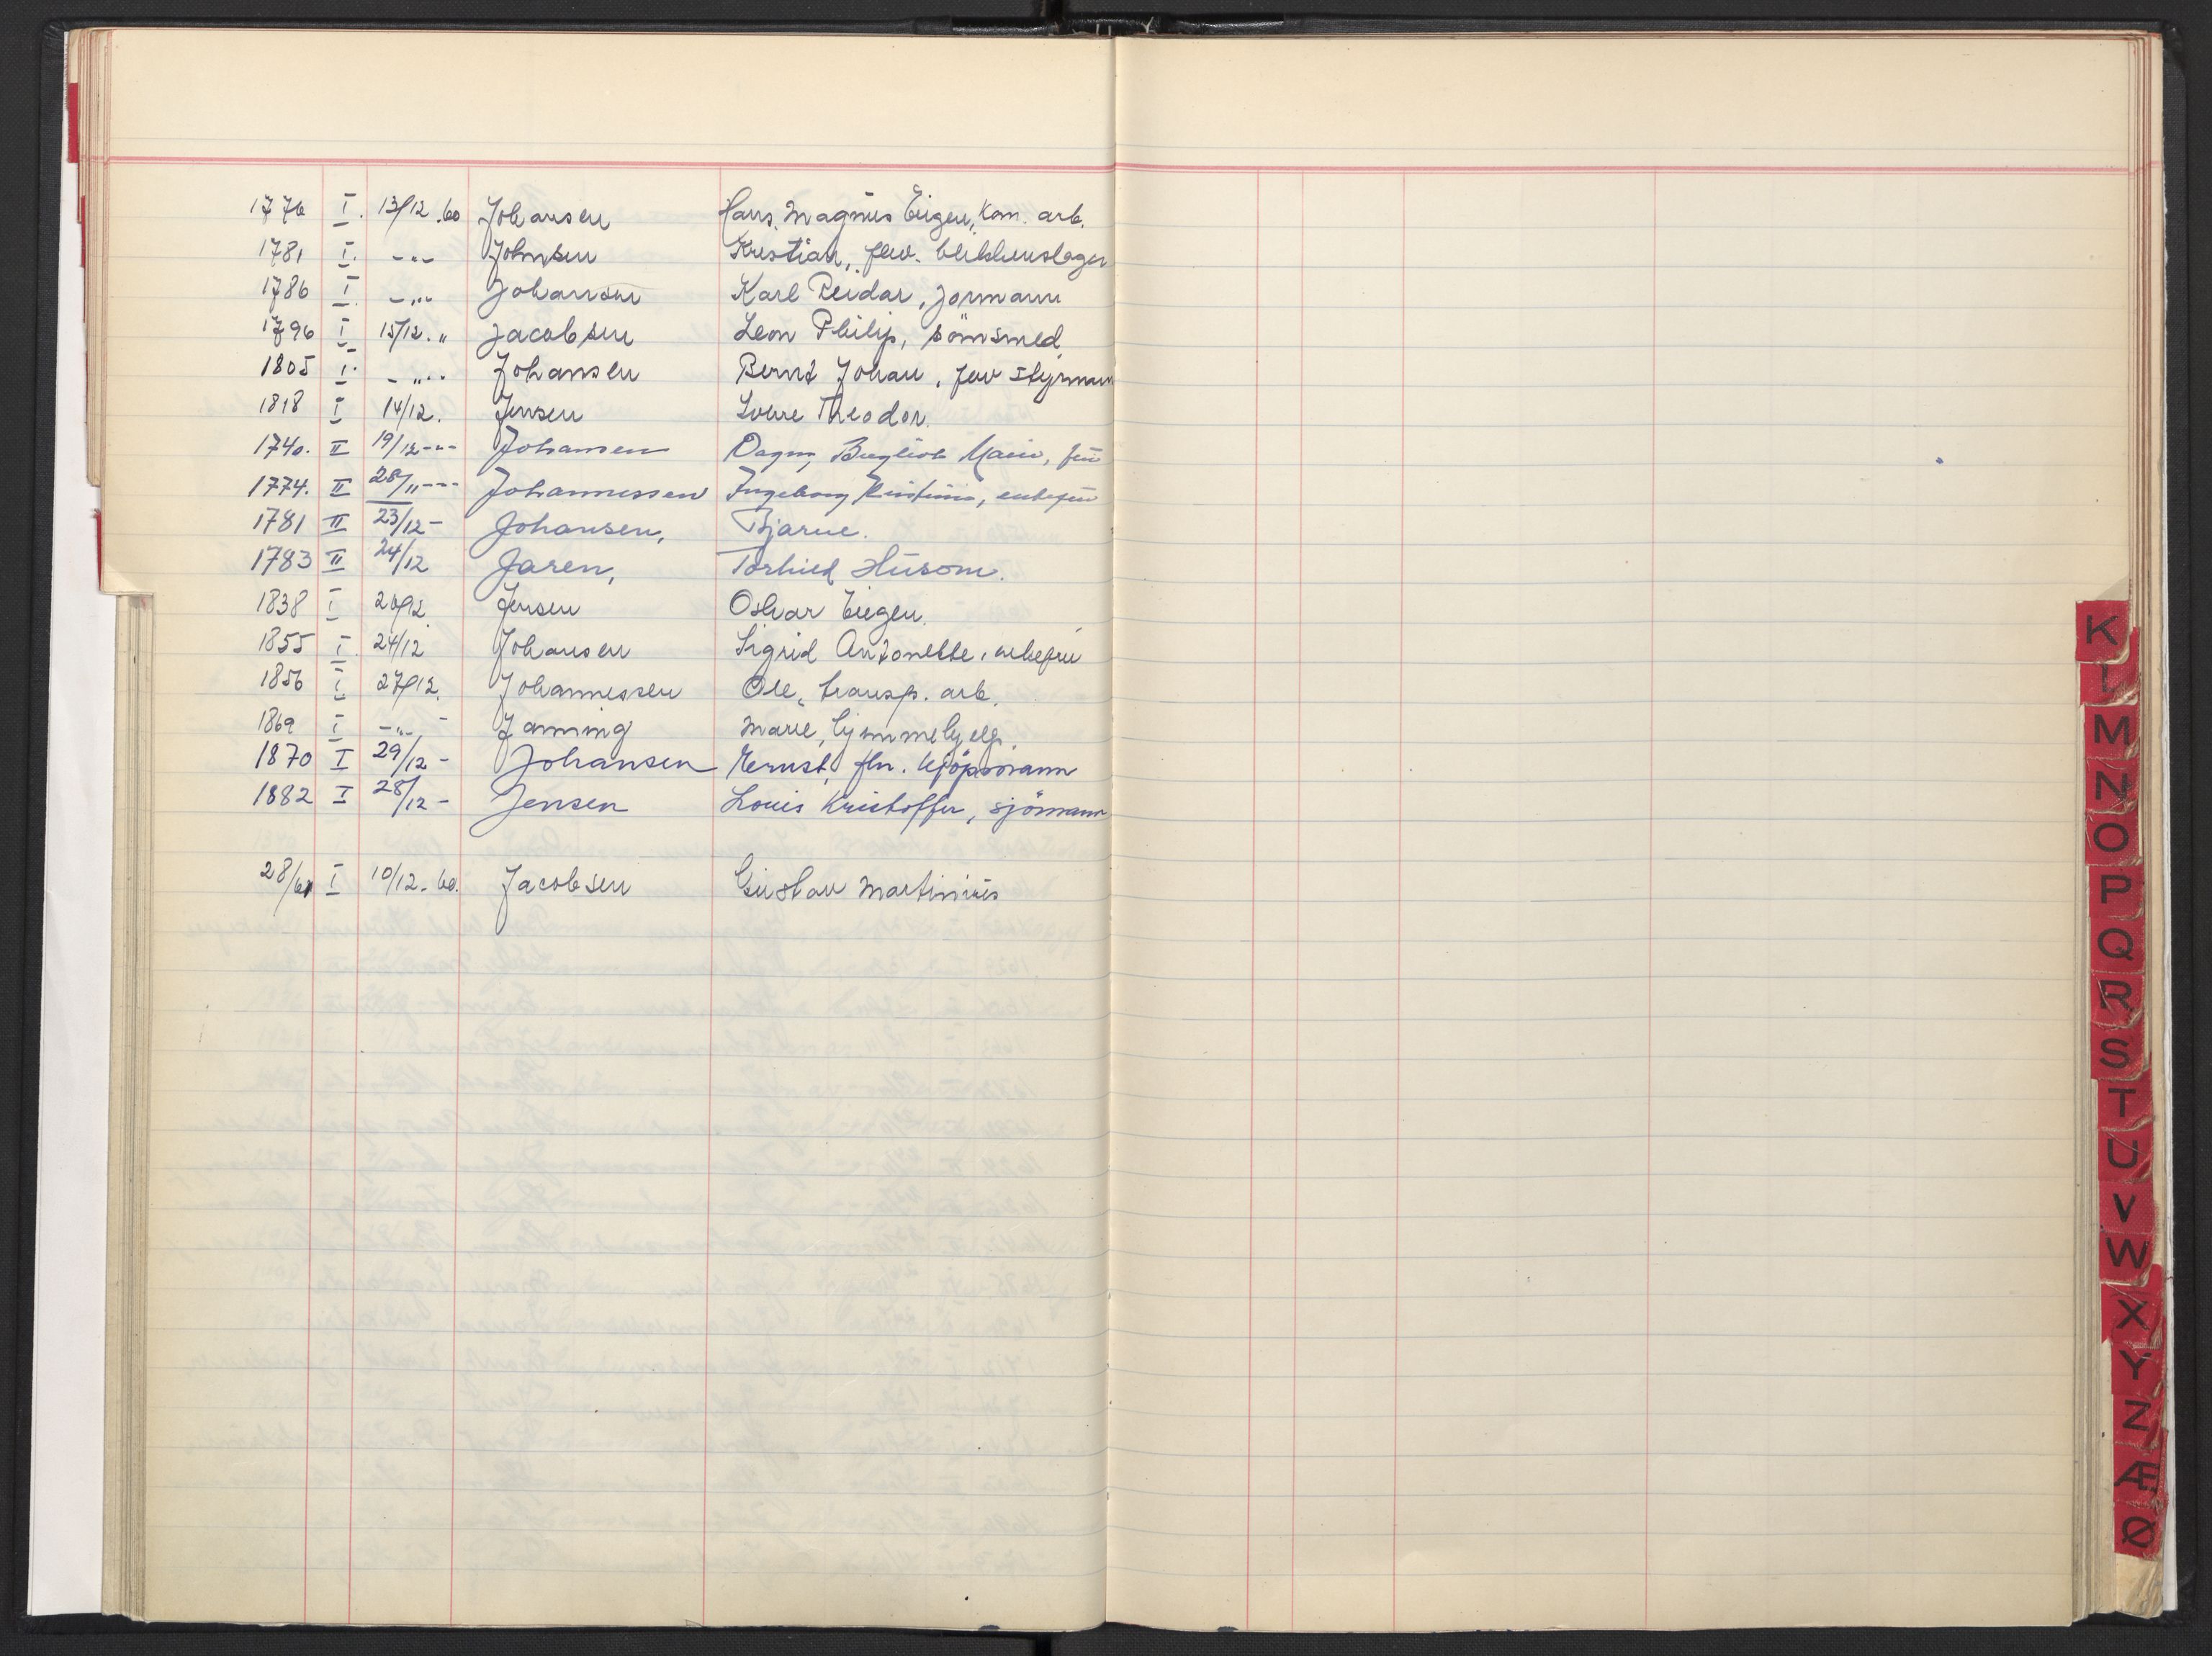 1776 I. 13/12.60 Johansen Hans Magnus Eugen, kom. arb.
1781 I. -"- Johnsen Kristian, fhv. blikkenslager
1786 I. -"- Johansen Karl Reidar, formann
1796 I 15/12." Jacobsen Leon Philip, sömsmed
1805 I. -"- Johansen Bernt Johan, fhv styrmann
1818 I 14/12. Jensen Sverre Theodor.
1740. II 19/12-"- Johansen Dagny Bergliot Marie, fru
1774. II 28/11--- Johannessen Ingeborg Kristine, enkefru
1781 II 23/12- Johansen, Bjarne.
1783 II 24/12 Jaren, Torhild Husom.
1838 I 20/12. Jensen Oskar Eugen.
1855 I. 24/12 Johansen Sigrid Antonette, enkefru
1856 I 27/12. Johannessen Ole, transp. arb.
1869 I -"- Janning Marie,
1870 I 29/12- Johansen Ernst, fhv. kjöpmann
1882 I 28/12- Jensen Louis Kristoffer, sjömann
28/61 I 10/12-60. Jacobsen Gustav Martinius
K
L
M
N
O
P
Q
R
S
T
U
V
W
X
Y
Z
Æ
Ø